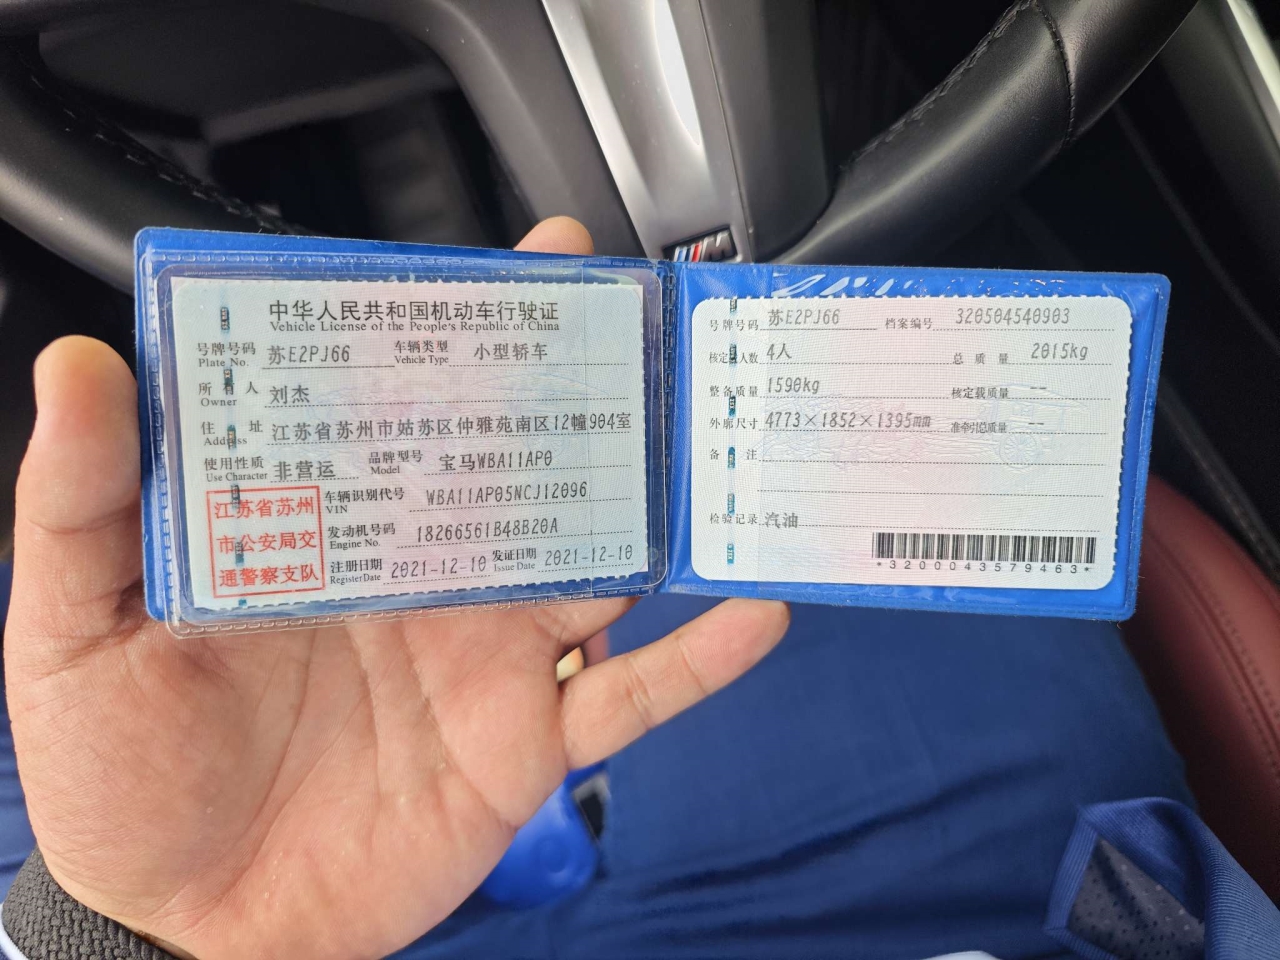 中华人民共和国机动车行驶证
Vehicle License of the People's Republic of China
号牌号码 苏E2PJ66 车辆类型 小型轿车
Plate No. Vehicle Type
所有人 刘杰
Owner
住址 江苏省苏州市姑苏区仲雅苑南区12幢904室
Address
使用性质 非营运 品牌型号 宝马WBA11AP0
Use Character Model
江苏省苏州
市公安局交
通警察支队
车辆识别代号 WBA11AP05NCJ12096
VIN
发动机号码 18266561B48B20A
Engine No.
注册日期 2021-12-10 发证日期 2021-12-10
Register Date Issue Date
号牌号码 苏E2PJ66 档案编号 320504540903
核定人数 4人 总质量 2015kg
整备质量 1590kg 核定载质量 --
外廓尺寸 4773×1852×1395mm 准牵引总质量 --
备注
检验记录 汽油
*3200043579463*
M